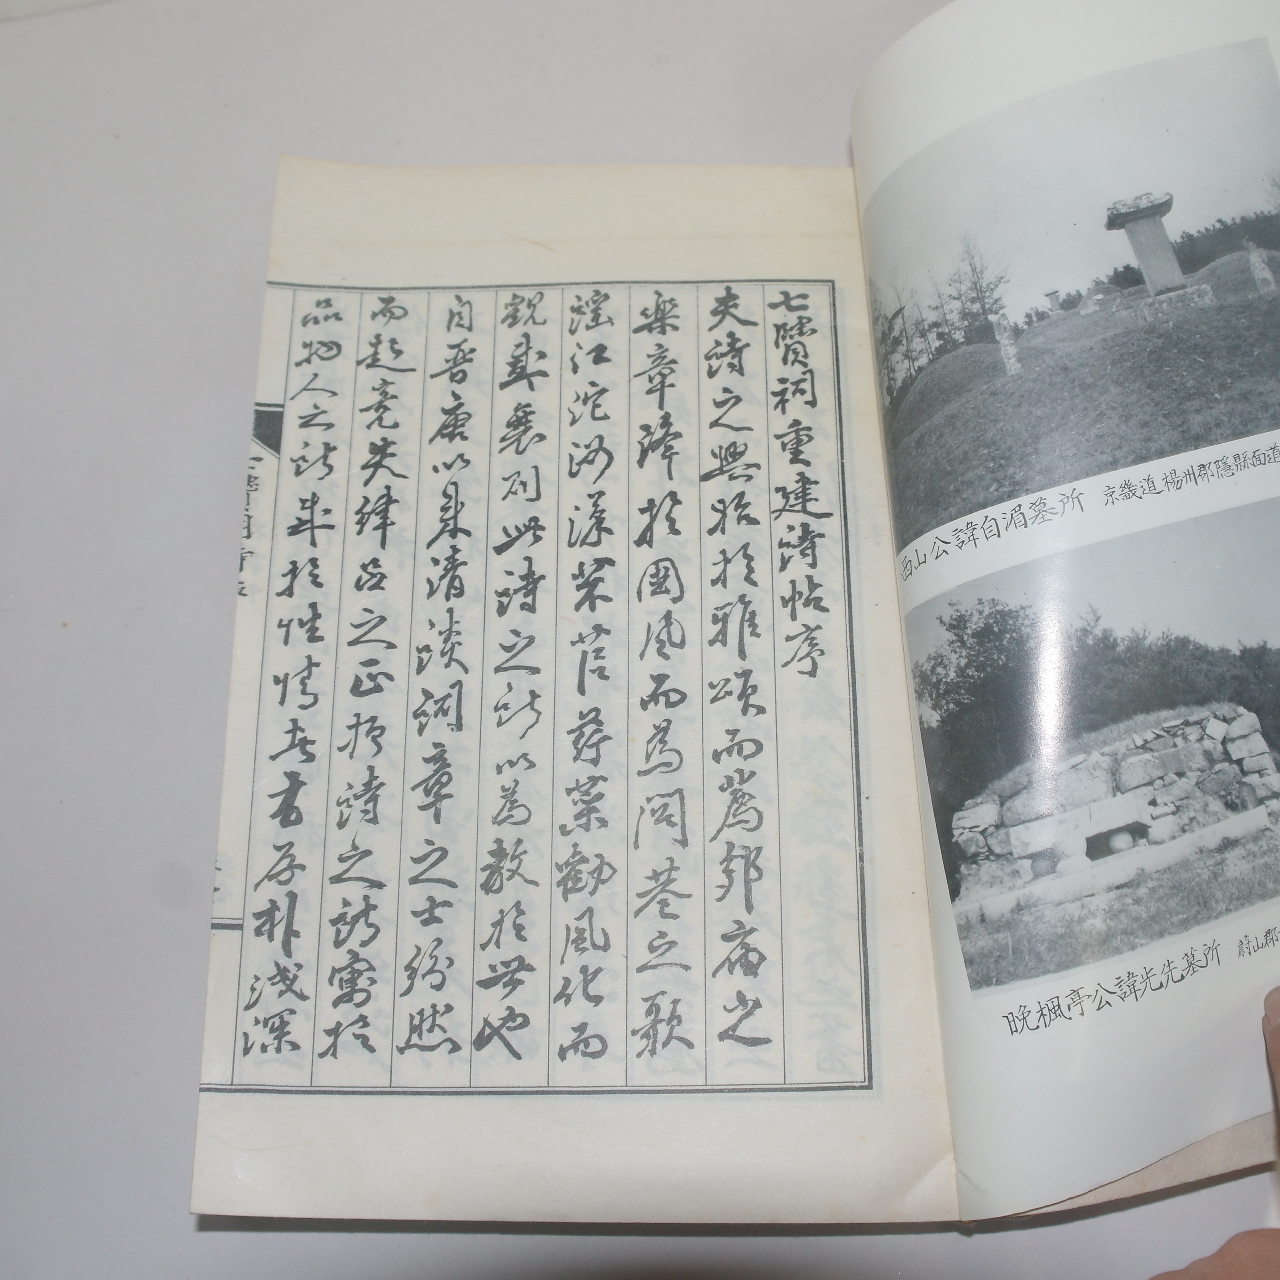 西山公諱自湄墓所 京畿道楊州郡隱縣面道
晩楓亭公諱光先墓所 蔚山郡
七賢祠重建詩帖序
夫詩之興始於雅頌而薦郊庙之
樂章降於國風而為閭巷之歌
謠江沱沔漢芣苢蘋藻勸風化而
觀盛衰則此詩之所以為教於世也
自晋唐以来清淡詞章之士紛然
而起竞失律呂之正按詩之所寓於
品物人之所率於性情者有厚朴浅深